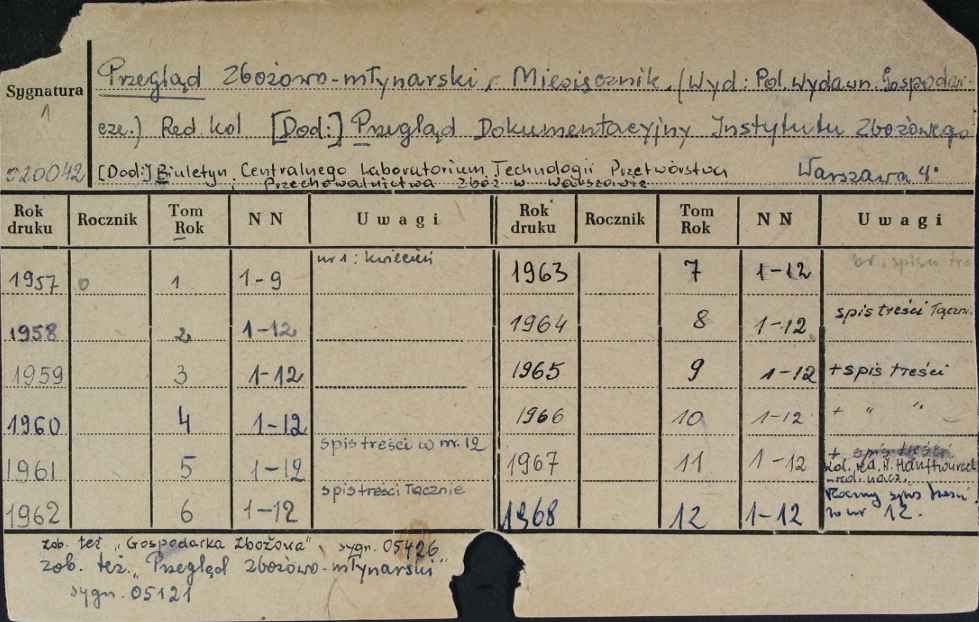 Przegląd Zbożowo-młynarski, Miesięcznik. (Wyd: Pol. Wydawn. Gospodar-
Sygnatura
1
cze.) Red. kol [Dod:] Przegląd Dokumentacyjny Instytutu Zbożowego
520042
[Dod:] Biuletyn Centralnego Laboratorium Technologii Przetwórstwa
Przechowalnictwa Zbóż w Warszawie
Warszawa 4°
Rok druku Rocznik Tom Rok NN Uwagi Rok druku Rocznik Tom Rok NN Uwagi
1957 0 1 1-9 nr 1: kwiecień 1963 7 1-12 br. spisu tre
1958 2 1-12 1964 8 1-12 spis treści łączn.
1959 3 1-12 1965 9 1-12 + spis treści
1960 4 1-12 1966 10 1-12 + " "
1961 5 1-12 spis treści w nr. 12 1967 11 1-12 + spis treści
kol. red. H.
red. nacz.
1962 6 1-12 spis treści łącznie 1968 12 1-12 Roczny spis treści
w nr 12.
zob. też „Gospodarka Zbożowa", sygn. 05426
zob. też „Przegląd zbożowo-młynarski"
sygn. 05121